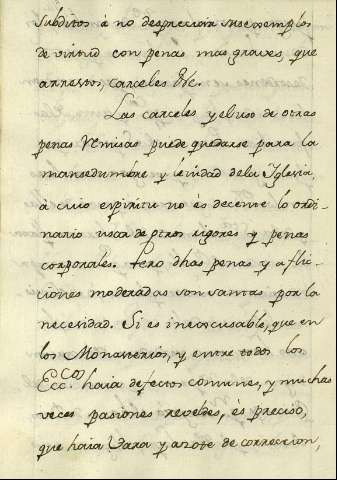 subditos à no despreciar sus exemplos
de virtud con penas mas graves, que
arrestos, carceles &c.
Las carceles y el uso de otras
penas remisas puede quedarse para la
mansedumbre y lenidad de la Iglesia,
à cuio espiritu no és decente lo ordi-
nario usar de otros rigores y penas
corporales. Pero dhas penas y aflic-
ciones moderadas son santas por la
necesidad. Si es inexcusable, que en
los Monasterios, y entre todos los
Ecc.cos haia defectos comunes, y muchas
veces pasiones reveldes, és preciso,
que haia Vara y azote de correccion,